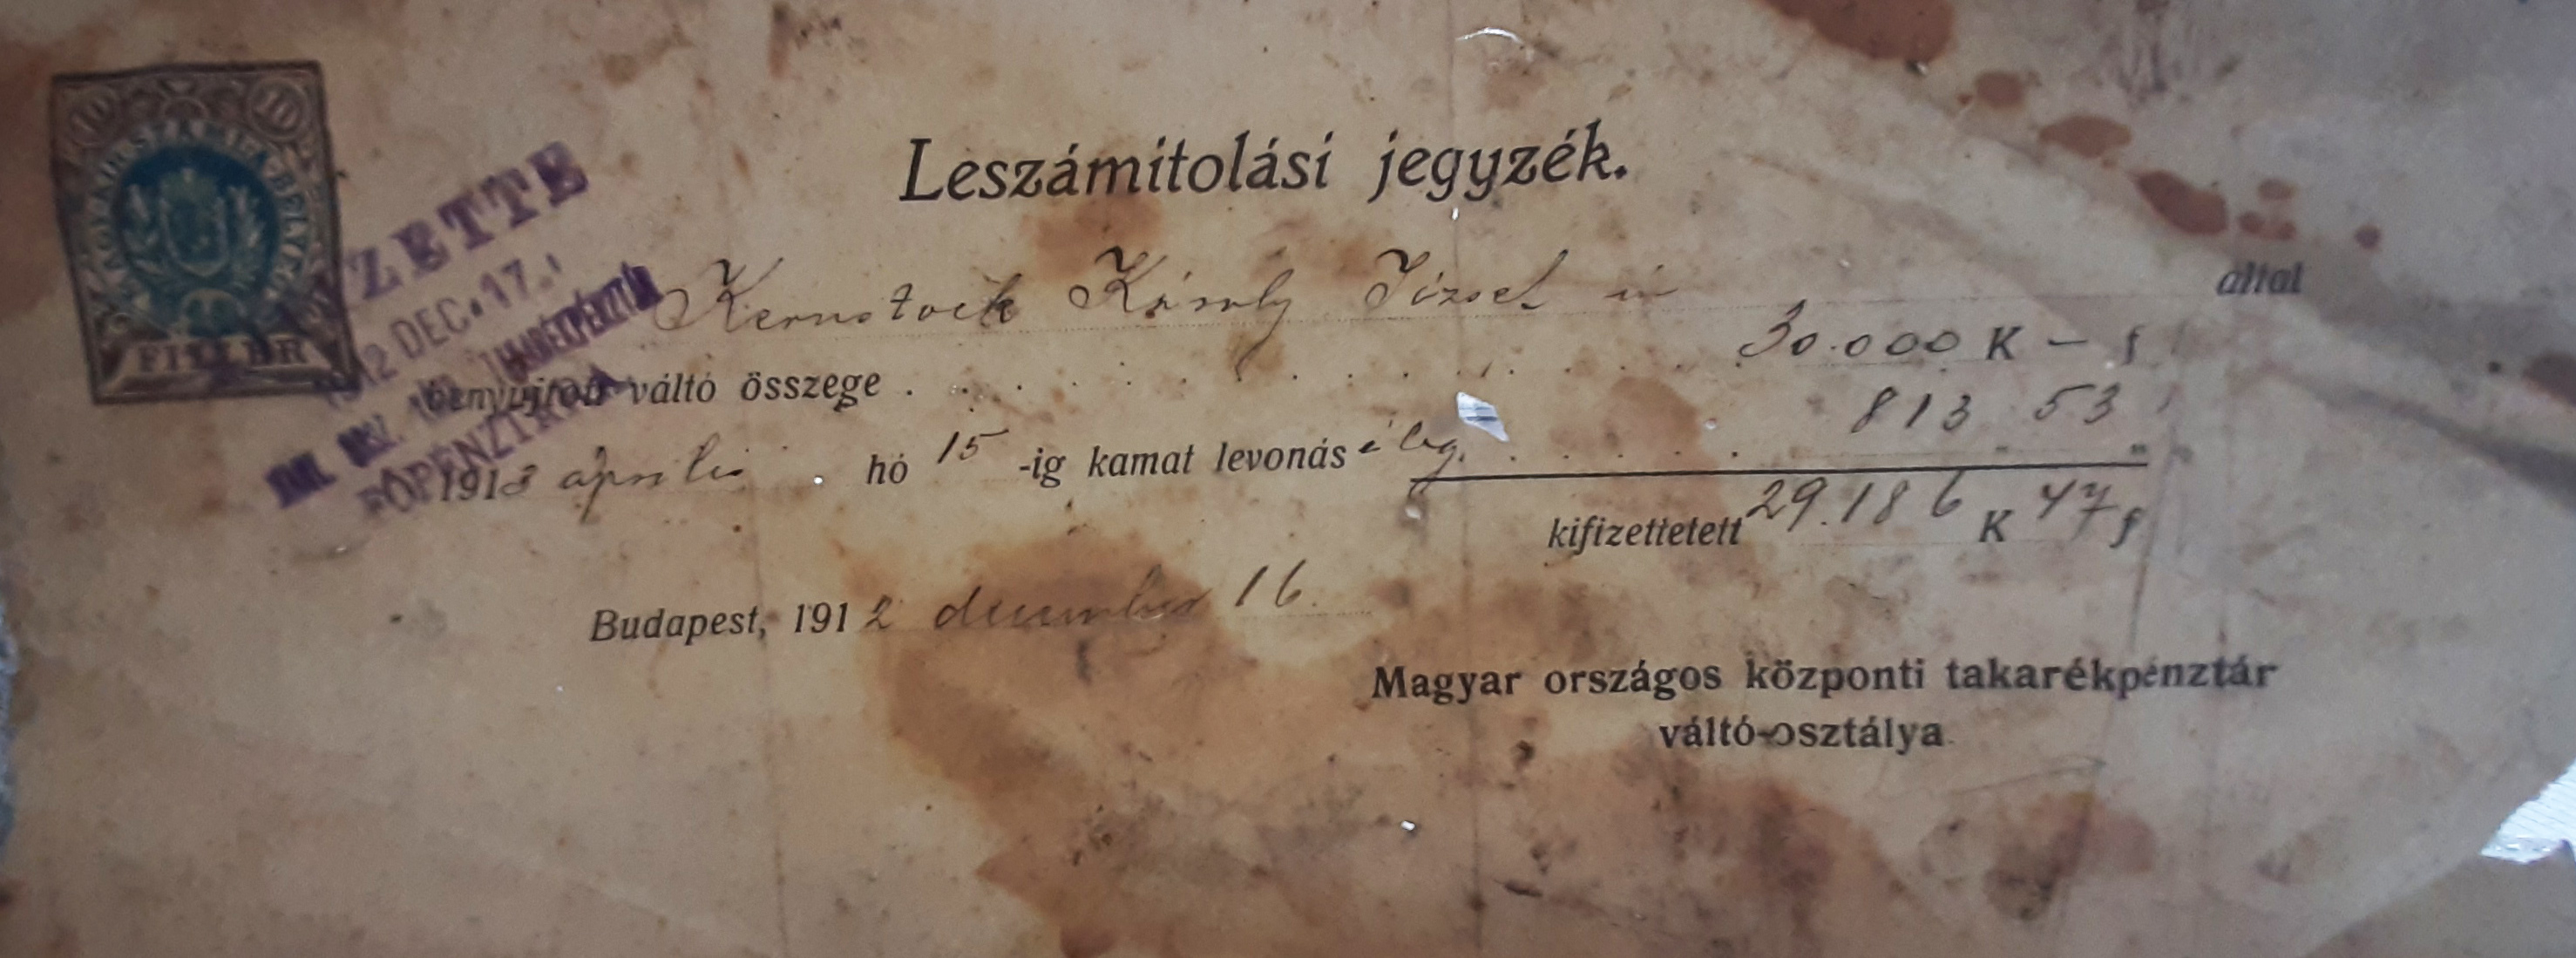 10 10
MAGYAR SZÁMLABÉLYEG
FILLÉR
Leszámitolási jegyzék.
FIZETTE
1912 DEC. 17.
FŐPÉNZTÁRA
Kernstock Károly József úr által
benyujtott váltó összege . . . . 30.000 K — f
1913 április hó 15 -ig kamat levonás . . . . 813 53 „
kifizettetett 29.186 K 47 f
Budapest, 1912 december 16.
Magyar országos központi takarékpénztár
váltó-osztálya